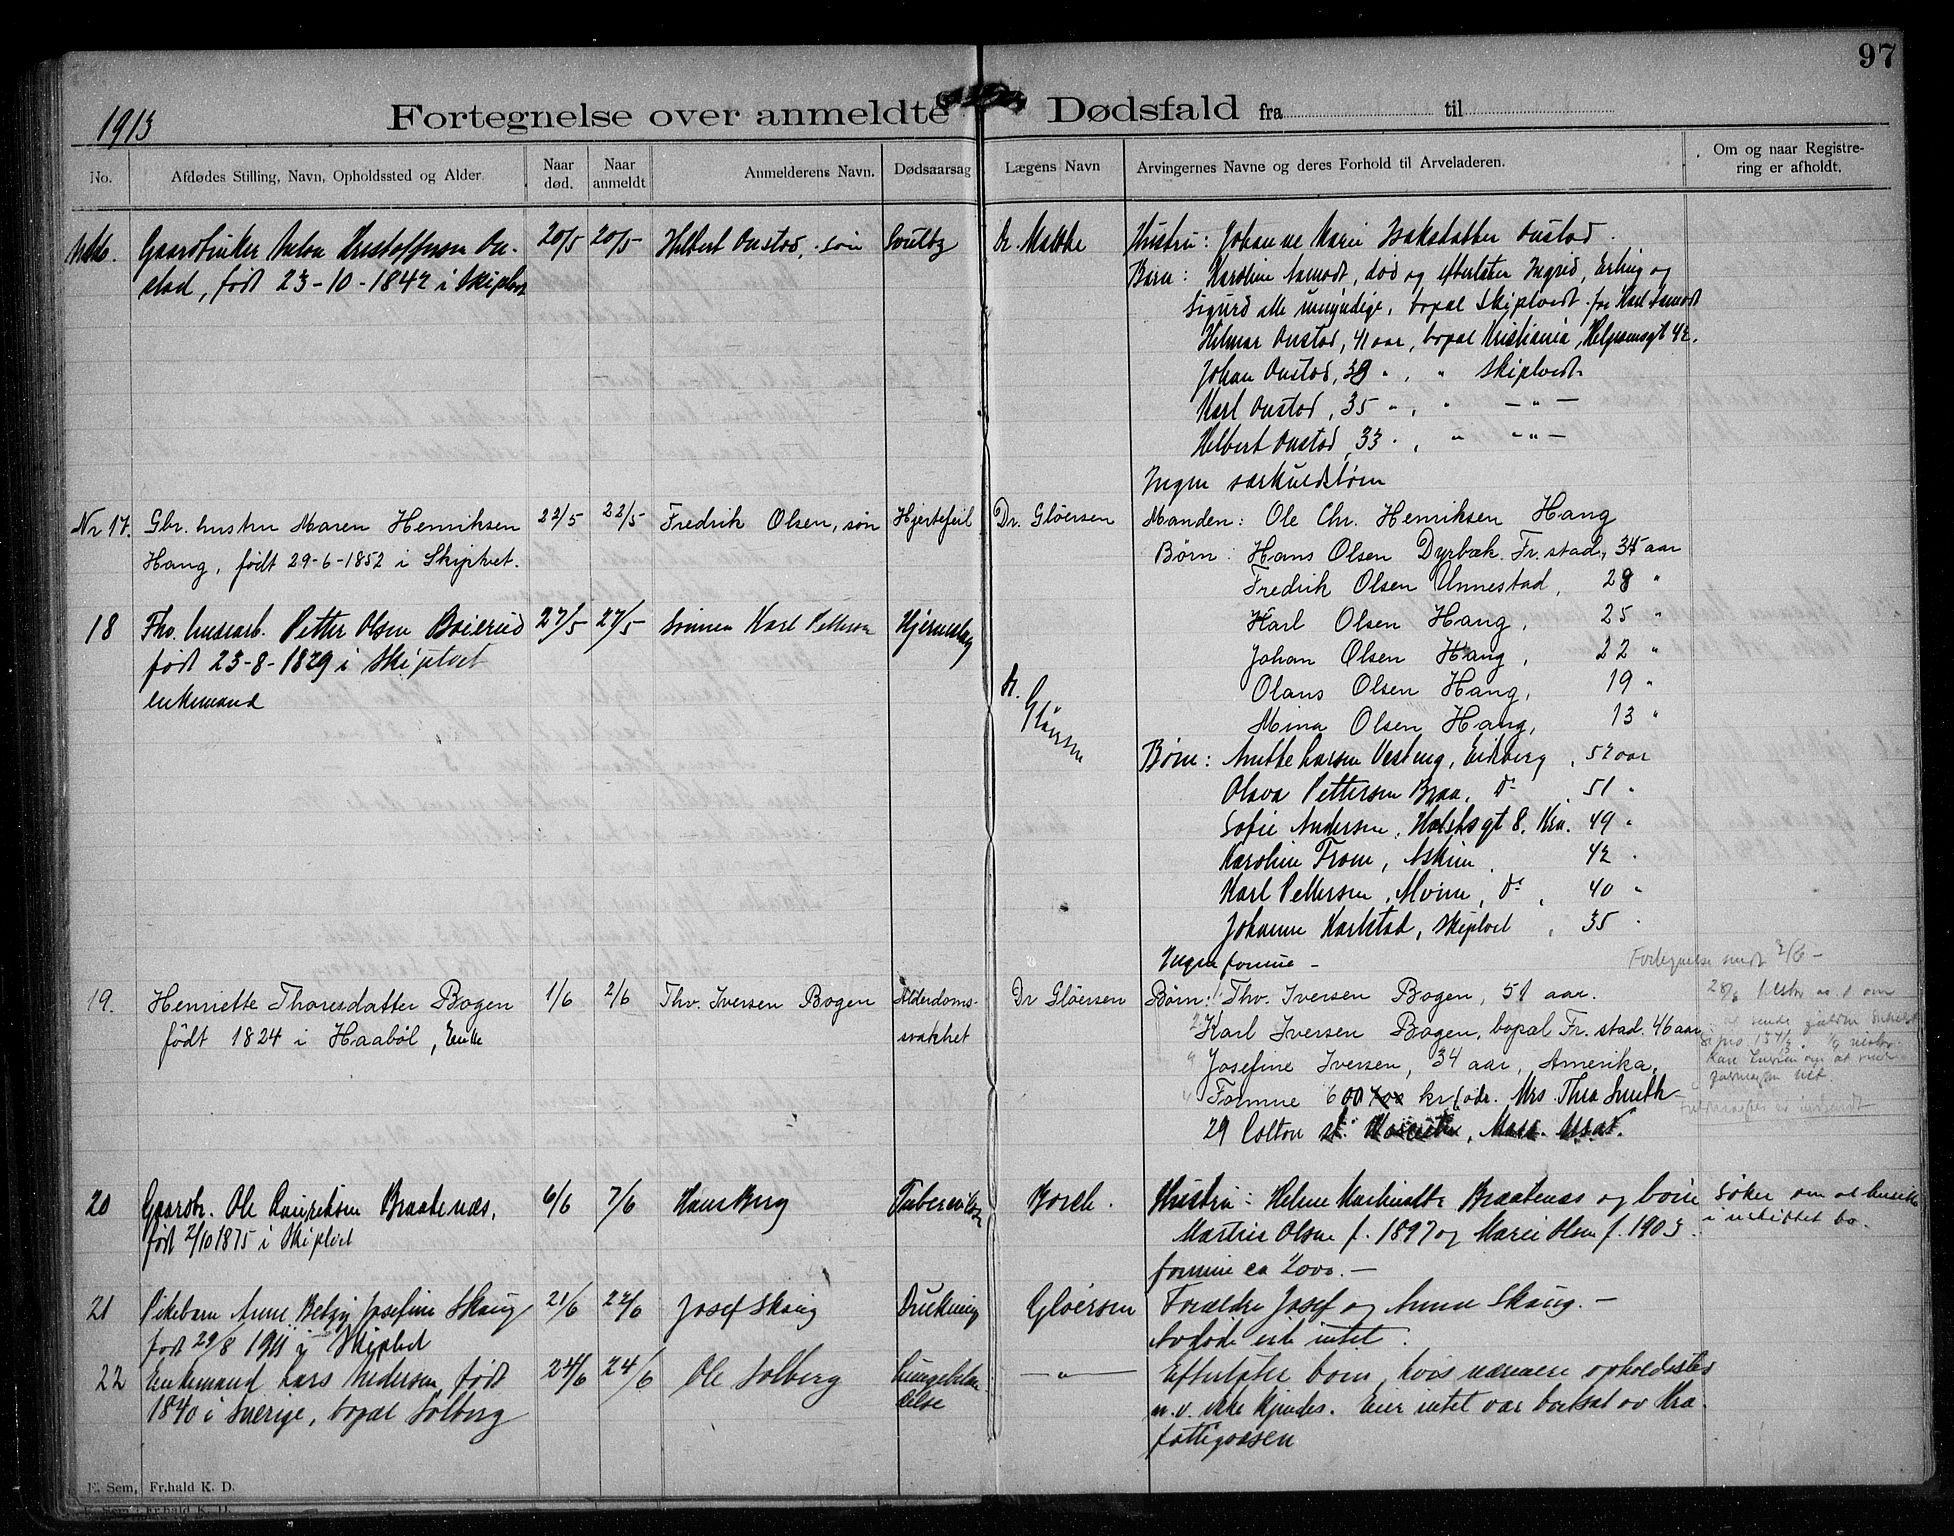 97
1913
Fortegnelse over anmeldte Dødsfald fra til
No.
Afdødes Stilling, Navn, Opholdssted og Alder.
Naar død.
Naar anmeldt
Anmelderens Navn.
Dødsaarsag
Lægens Navn
Arvingernes Navne og deres Forhold til Arveladeren.
Om og naar Registre-
ring er afholdt.
Anton Kristoffersen On- 20/5 20/5 Helbert Onstad, søn Svulst Dr. Hustru: Johanne Marie Isaksdatter Onstad.
stad, født 23-10-1842 i Skiptvet
Børn: Karoline Aamodt, død og efterlater Ingrid, Erling og
Sigurd alle umyndige, bopæl Skiptvedt. for Karl Aamodt
Helmer Onstad, 41 aar, bopæl Kristiania, Helgesensgt 42.
Johan Onstad, 39 " , " Skiptvedt
Karl Onstad, 35 " , " — " —
Helbert Onstad, 33 " , " — " —
Ingen særkuldsbørn
Nr 17. Gbr. hustru Maren Henriksen 22/5 22/5 Fredrik Olsen, søn Hjertefeil Dr. Gløersen Manden: Ole Chr. Henriksen Haug
Haug, født 29-6-1852 i Skiptvet. Børn: Hans Olsen Dyrbæk Fr.stad, 35 aar
Fredrik Olsen Unnestad, 28 "
Karl Olsen Haug, 25 "
Johan Olsen Haug, 22 "
Olaus Olsen Haug, 19 "
Mina Olsen Haug, 13 "
18 Fhv. Petter Olsen Baierud 27/5 27/5 Sønnen Karl Pettersen Hjerneslag Dr. Gløersen
født 23-8-1829 i Skiptvet
enkemand
Børn: Anette Larsen Vesteng, Eidsberg, 52 aar
Olava Pettersen Braa, do 51 "
Sofie Andersen, Holstsgt 8. Kra. 49 "
Karoline From, Askim 42 "
Karl Pettersen, Moen, do, 40 "
Johanne Karlstad, Skiptvet, 35 "
Ingen formue –
Fortegnelse sendt 2/6 –
19. Henriette Thoresdatter Bogen 1/6 2/6 Thv. Iversen Bogen Alderdoms- Dr Gløersen Børn: 1 Thv. Iversen Bogen, 51 aar.
født 1824 i Haabøl, Enke svakhet 2 Karl Iversen Bogen, bopæl Fr.stad 46 aar
Josefine Iversen, 34 aar, Amerika,
Formue 600 kr. (adr. Mrs Thea Smith
29 Colton st. Mass.
20 Gaardbr. Ole Lauritsen Braatenæs, 6/6 7/6 Hans Berg Tuberculose Borch. Hustru: Helene Braatenæs og børn Søker om at hensitte
født 2/10 1875 i Skiptvet Martin Olsen f. 1897 og Marie Olsen f. 1903. i uskiftet bo.
formue ca 2000. –
21 Pikebarn Anne Betzy Josefine Skaug 21/6 22/6 Josef Skaug Drukning Gløersen Forældre Josef og Anna Skaug. –
født 29/8 1911 i Skiptvet Avdøde eide intet.
22 Enkemand Lars Andersen, født 24/6 24/6 Ole Solberg — " — Efterlater børn, hvis nærmere opholdssted
1840 i Sverige, bopæl Solberg n.v. ikke kjendes. Eier intet var bortsat av Kra.
fattigvæsen
E. Sem, Fr.hald K. D.